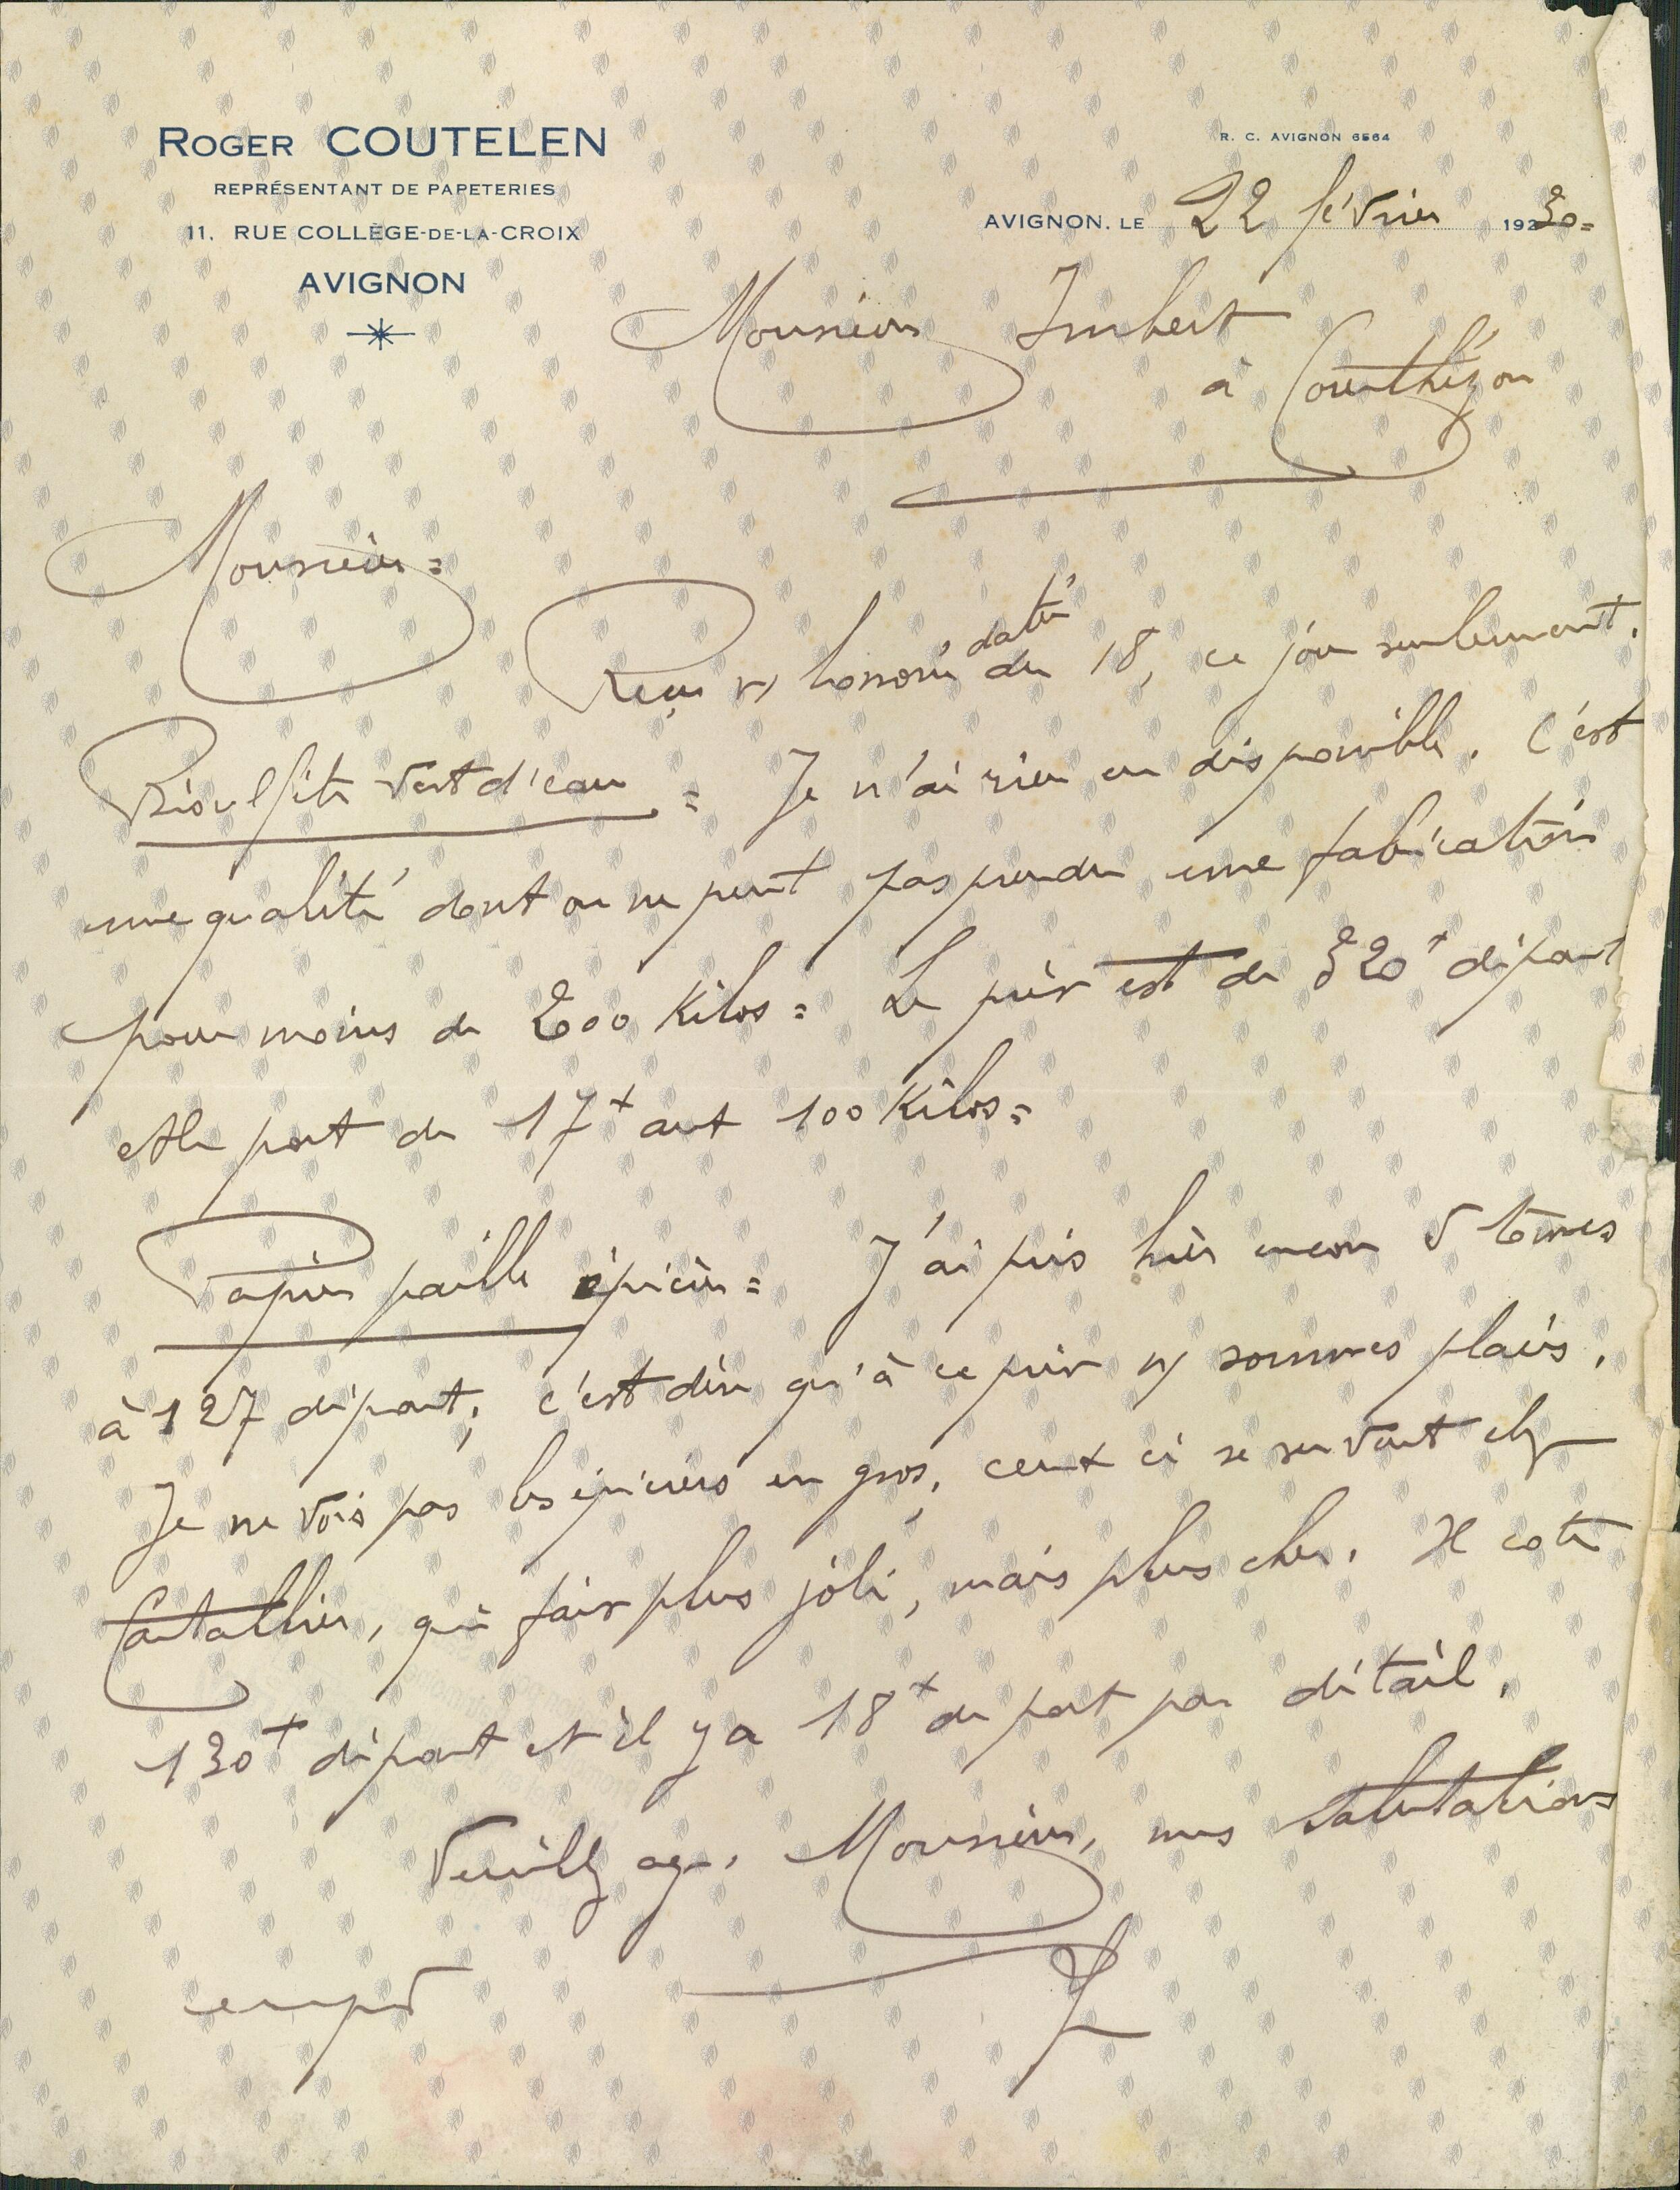 ROGER COUTELEN
REPRÉSENTANT DE PAPETERIES
11, RUE COLLÈGE-DE-LA-CROIX
AVIGNON
R. C. AVIGNON 6564
AVIGNON, LE 22 février 1930=
Monsieur Imbert
à Courthézon
Monsieur=
Reçu v/ honorée datée du 18, ce jour seulement.
Bisulfite Vert d'eau = Je n'ai rien en disponible. C'est
une qualité dont on ne peut pas prendre une fabrication
pour moins de 2000 Kilos= Le prix est de 320f départ
et le port de 17f aux 100 Kilos=
Papier paille épicier= J'ai pris hier encore 5 tonnes
à 127 départ; c'est dire qu'à ce prix n/ sommes placés.
Je ne vois pas les épiciers en gros, ceux ci se servant chez
qui fait plus joli, mais plus cher. Il cote
130f départ et il y a 18f de port par détail.
Veuillez agr. Monsieur, mes salutations
empsé